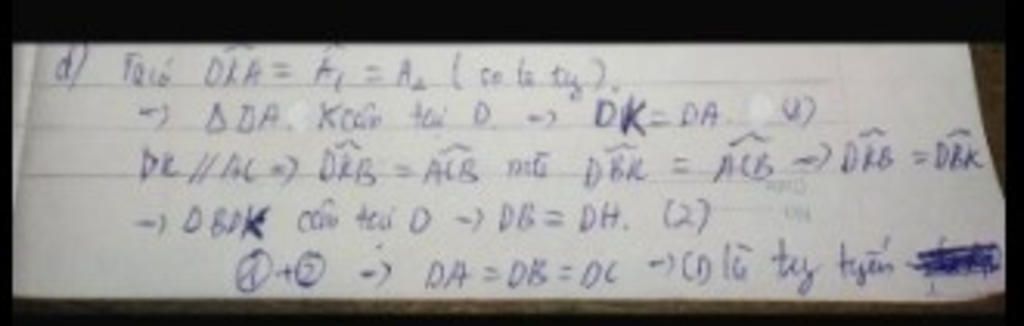 d) Ta có DKA = A₁ = A₂ (so le tg).
→ Δ DA K cân tại D → DK = DA (1)
DK // AC → DKB = ACB mà DBK = ACB → DKB = DBK
→ DBDK cân tại D → DB = DH. (2)
① + ② → DA = DB = DC → CD là tg tuyến